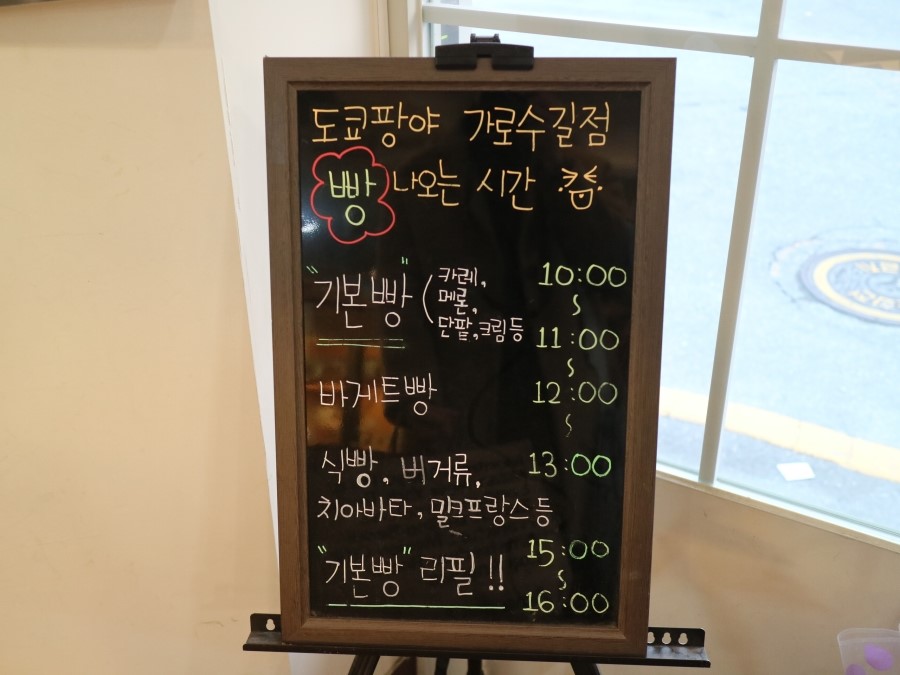 도쿄팡야 가로수길점
빵 나오는 시간
"기본빵" (카레, 메론, 단팥, 크림등 10:00
~
11:00
~
바게트빵 12:00
~
식빵, 버거류, 13:00
치아바타, 밀크프랑스 등
"기본빵" 리필!! 15:00
~
16:00